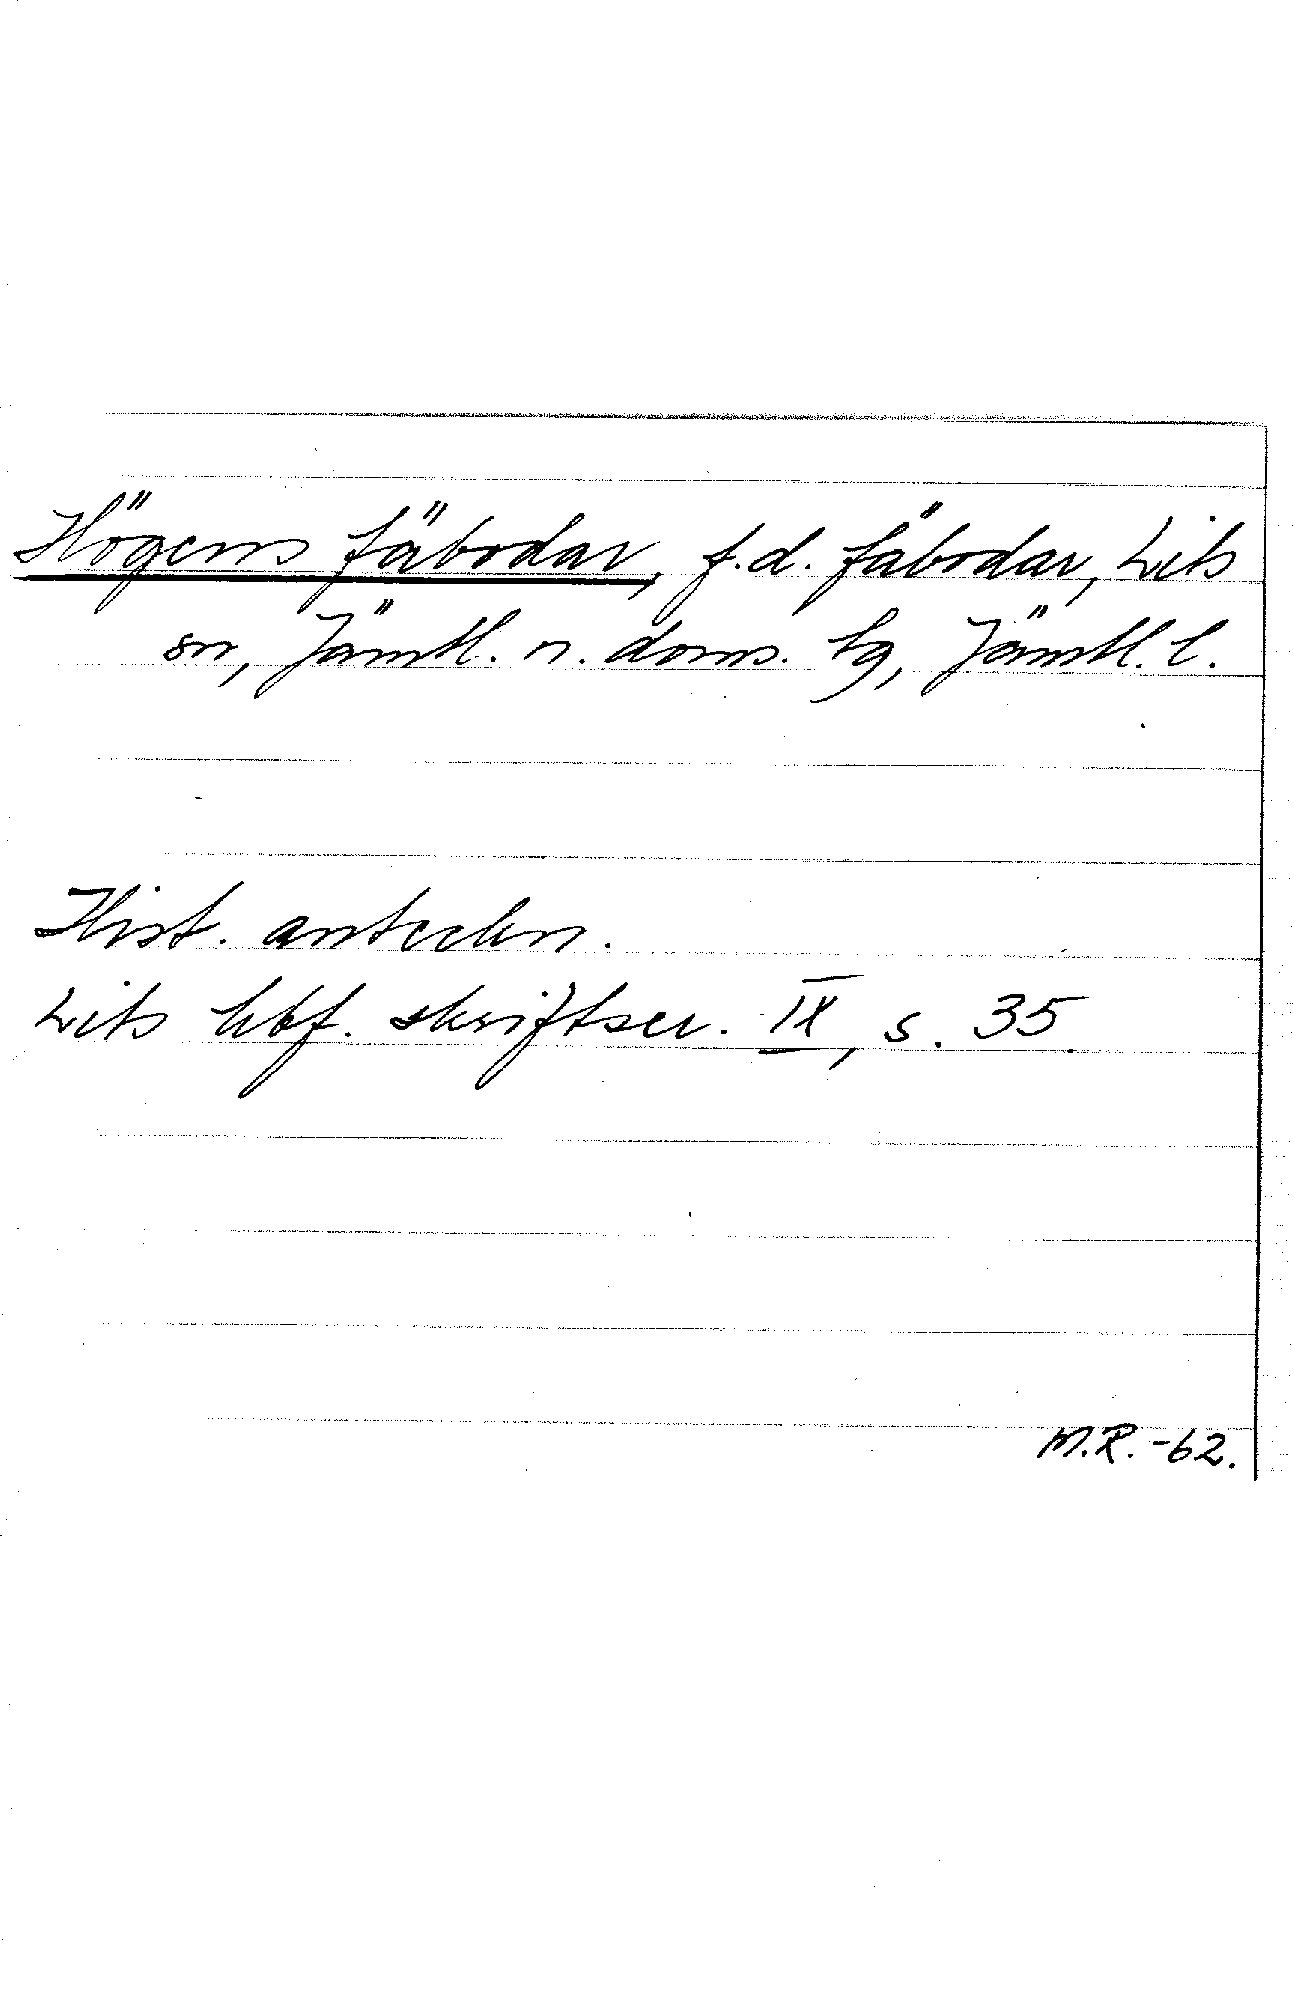 Högens fäbodar, f.d. fäbodar, Lits
sn, Jämtl. n. doms. tg, Jämtl. l.
Hist. anteckn.
Lits hbf. skriftser. IX, s. 35.
M.R. -62.